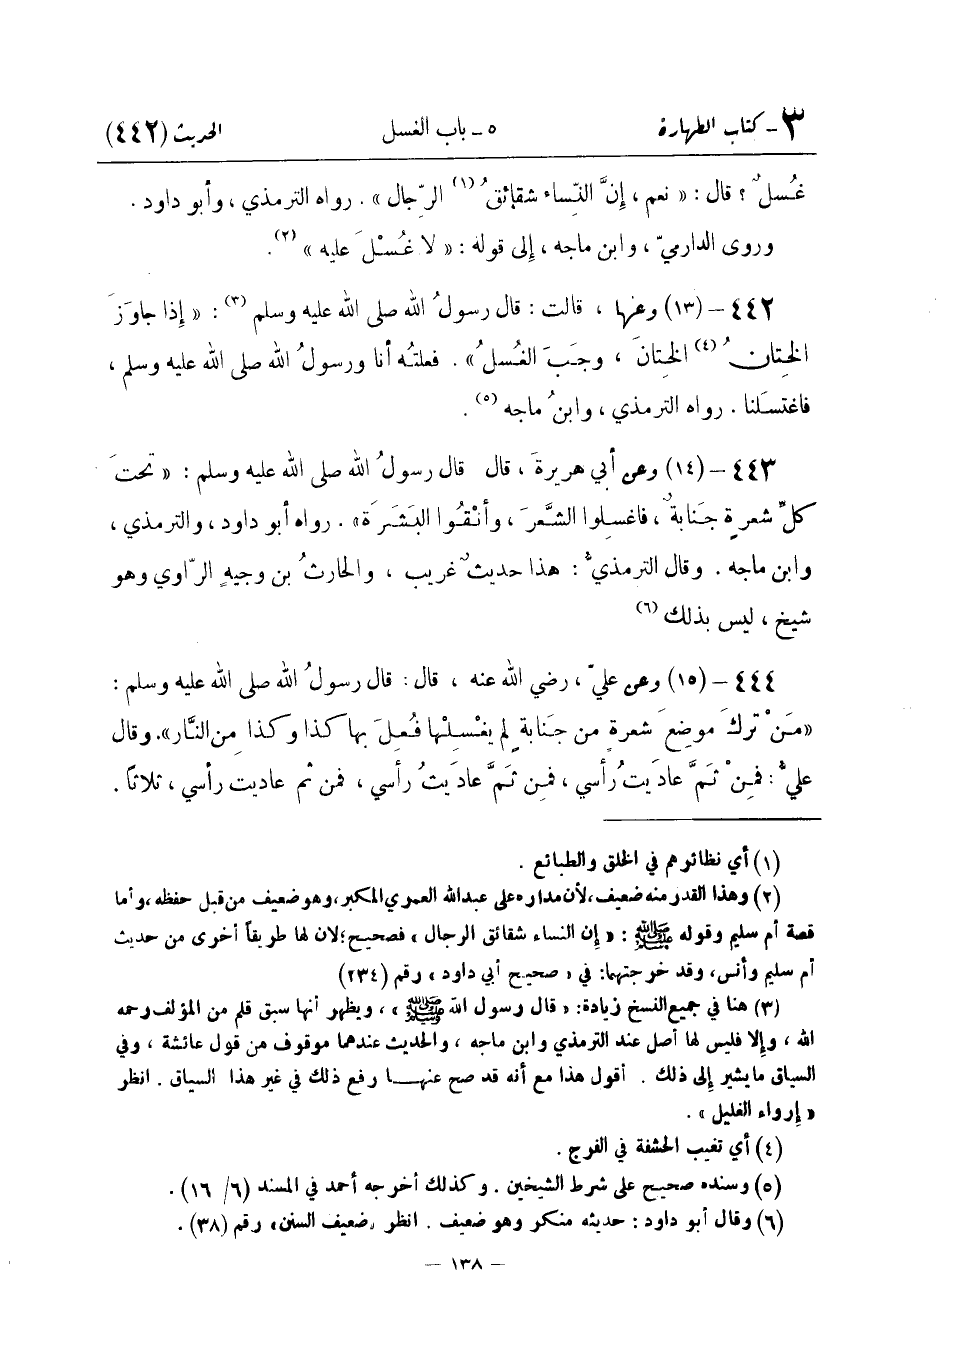 ٣ - كتاب الطهارة ٥ - باب الغسل الحديث (٤٤٢)
غُسلٌ ؟ قال : « نعم ، إنَّ النِّساء شقائقُ (١) الرِّجال » . رواه الترمذي ، وأبو داود .
وروى الدارميّ ، وابن ماجه ، إلى قوله : « لا غُسْلَ عليه » (٢) .
٤٤٢ - (١٣) وعنها ، قالت : قال رسولُ الله صلى الله عليه وسلم (٣) : « إذا جاوَزَ
الخِتانُ (٤) الخِتانَ ، وجَبَ الغُسلُ » . فعلتُه أنا ورسولُ الله صلى الله عليه وسلم ،
فاغتسَلنا . رواه الترمذي ، وابنُ ماجه (٥) .
٤٤٣ - (١٤) وعن أبي هريرةَ ، قال قال رسولُ الله صلى الله عليه وسلم : « تحتَ
كلِّ شعرةٍ جَنابةٌ ، فاغسِلوا الشَّعرَ ، وأنْقُوا البَشَرَة» . رواه أبو داود ، والترمذي ،
وابن ماجه . وقال الترمذيُّ : هذا حديثٌ غريب ، والحارثُ بن وجيهٍ الرّاوي وهو
شيخ ، ليس بذلك (٦)
٤٤٤ - (١٥) وعن عليّ ، رضي الله عنه ، قال : قال رسولُ الله صلى الله عليه وسلم :
«مَنْ تركَ موضِعَ شعرةٍ من جَنابةٍ لم يغْسِلْها فُعِلَ بها كذا وكذا مِن النَّار». وقال
عليٌّ : فمِنْ ثَمَّ عادَيتُ رأسي ، فمِن ثَمَّ عادَيتُ رأسي ، فمن ثم عاديت رأسي ، ثلاثاً .
(١) أي نظائرهم في الخلق والطبائع .
(٢) وهذا القدر منه ضعيف ، لأن مداره على عبدالله العمري المكبر ، وهو ضعيف من قبل حفظه ، وأما
قصة أم سليم وقوله ﷺ : « إن النساء شقائق الرجال » فصحيح ؛ لان لها طريقاً أخرى من حديث
أم سليم وأنس، وقد خرجتهما: في « صحيح أبي داود » رقم (٢٣٤)
(٣) هنا في جميع النسخ زيادة: « قال رسول الله ﷺ » ، ويظهر أنها سبق قلم من المؤلف رحمه
الله ، وإلا فليس لها أصل عند الترمذي وابن ماجه ، والحديث عندهما موقوف من قول عائشة ، وفي
السياق ما يشير إلى ذلك . أقول هذا مع أنه قد صح عنهـا رفع ذلك في غير هذا السياق . انظر
« إرواء الغليل » .
(٤) أي تغيب الحشفة في الفرج .
(٥) وسنده صحيح على شرط الشيخين . وكذلك أخرجه أحمد في المسند (٦/ ١٦) .
(٦) وقال أبو داود : حديثه منكر وهو ضعيف . انظر «ضعيف السنن» رقم (٣٨) .
— ١٣٨ —